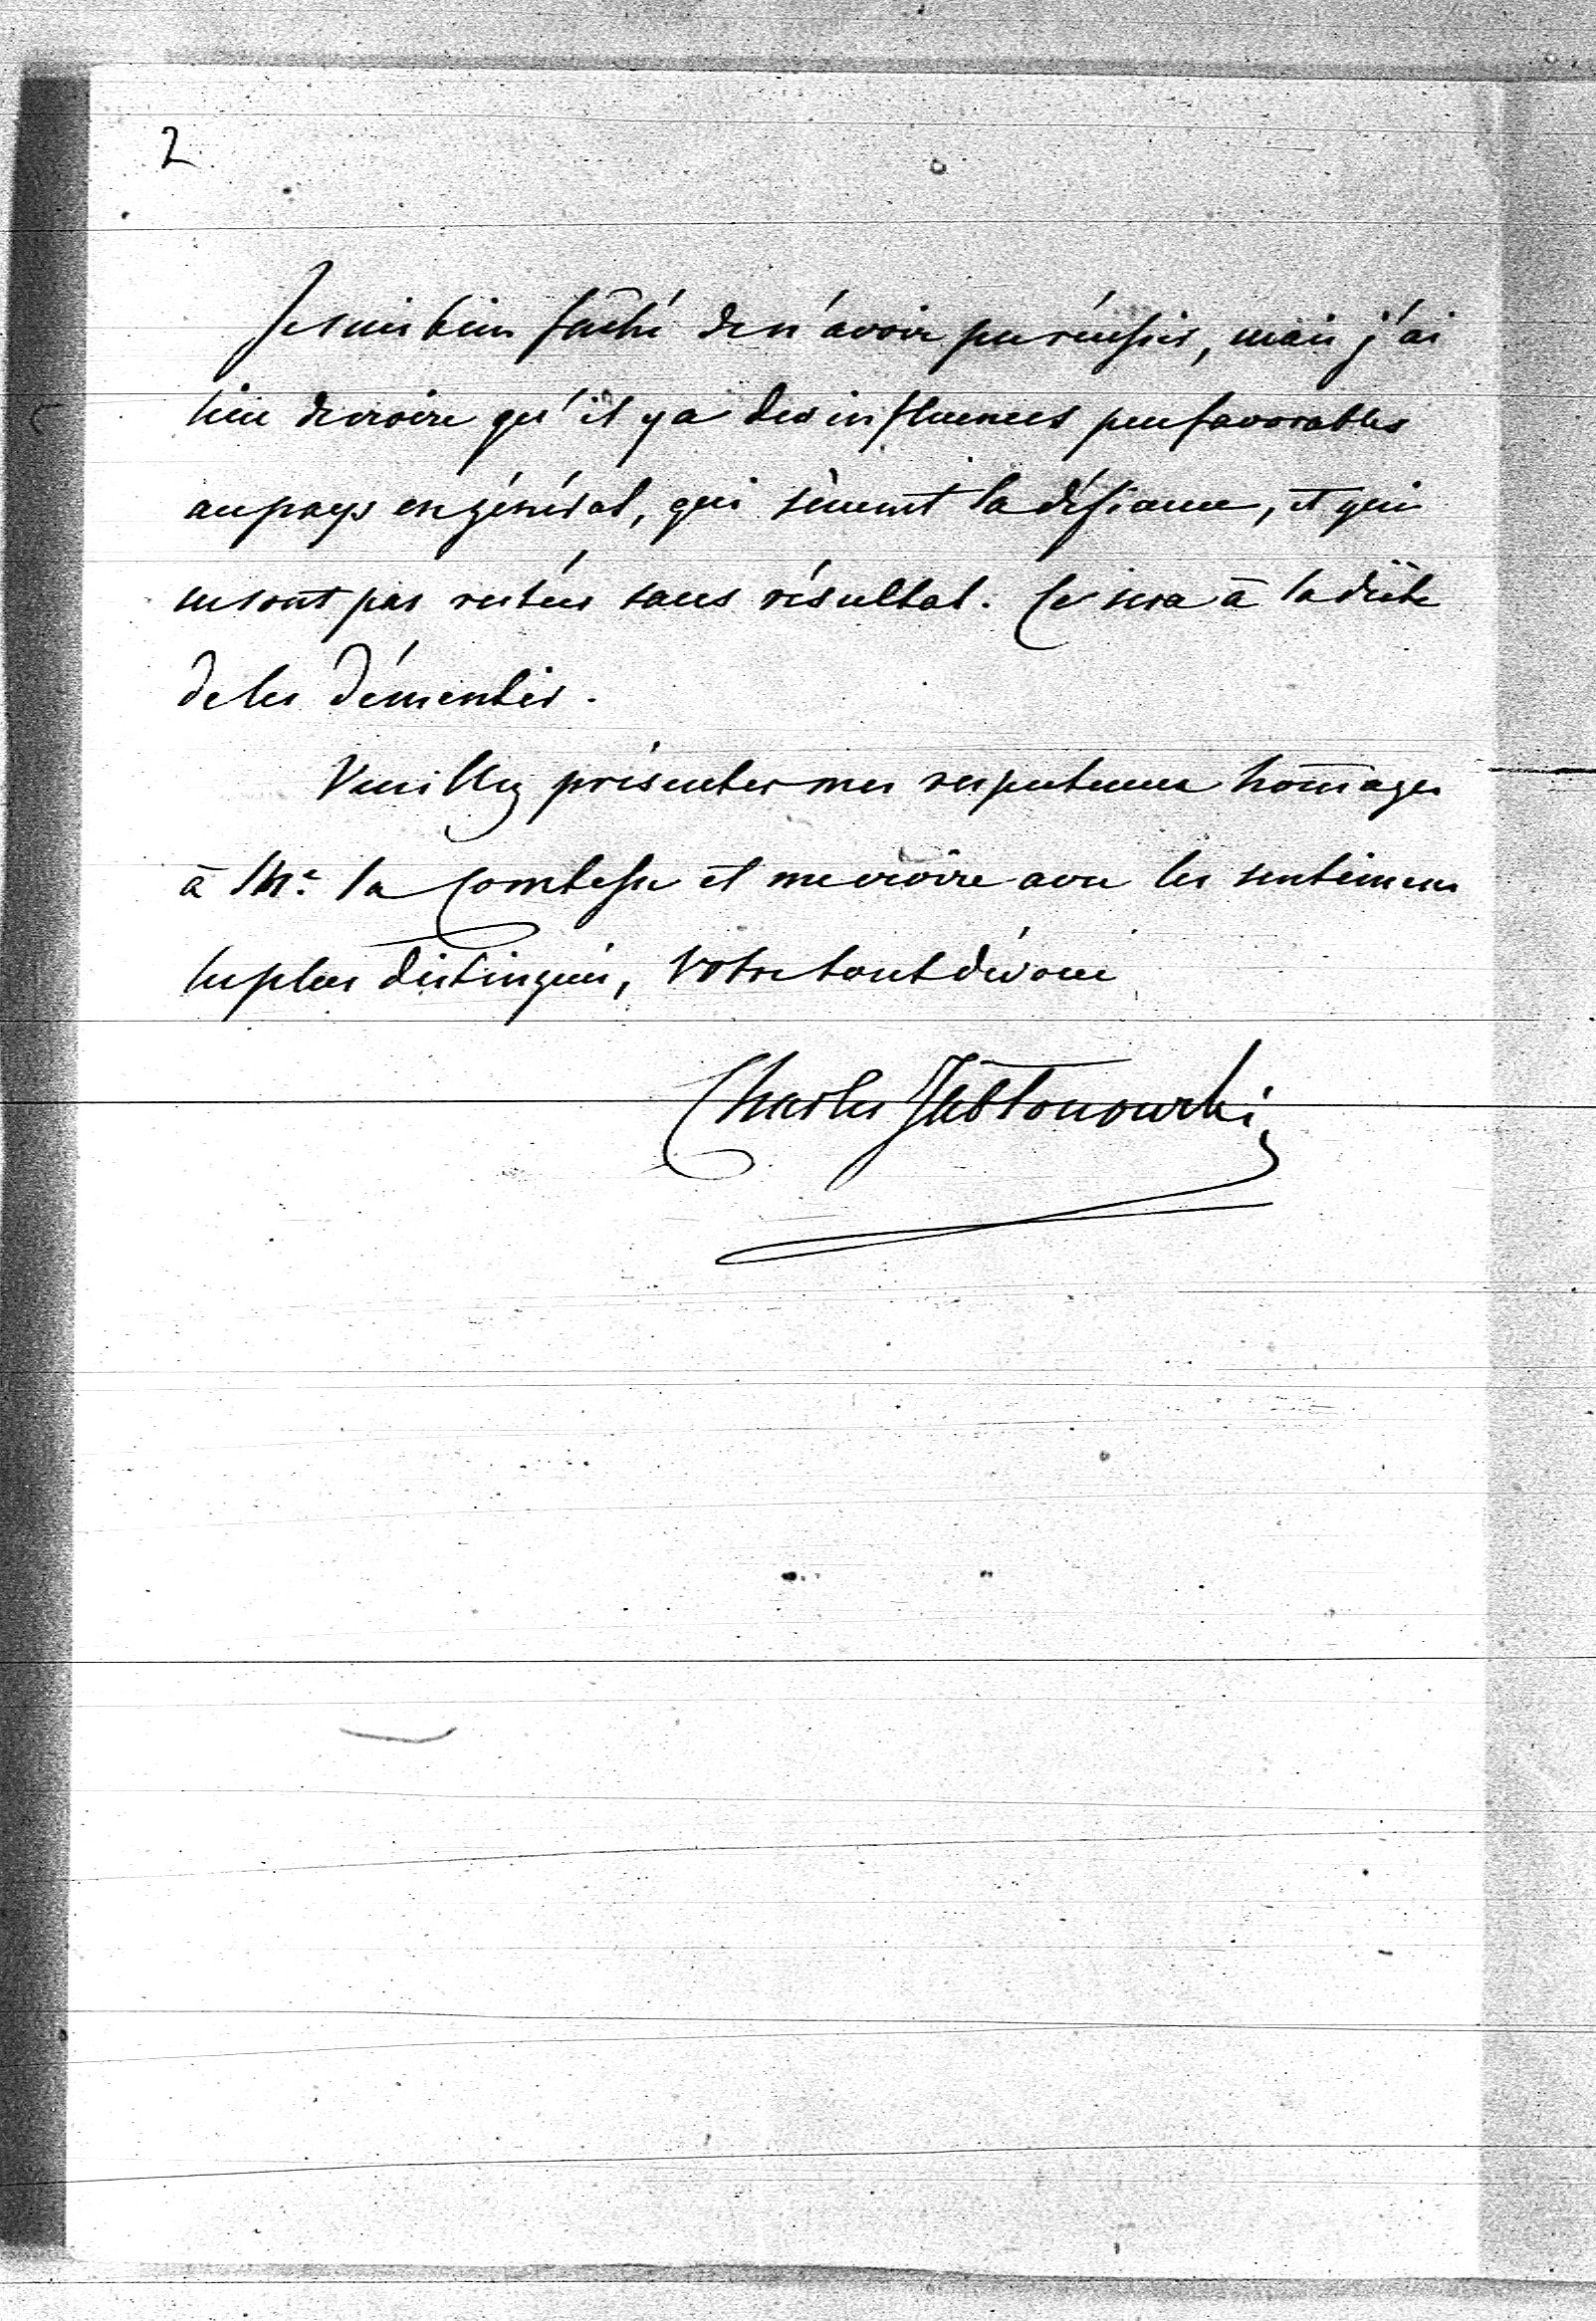 2
Je suis bien fâché de n'avoir pu réussir, mais j'ai
lieu de croire qu'il y a des influences peu favorables
au pays en général, qui sèment la défiance, et qui
ne sont pas restées sans résultat. Ce sera à la diète
de les démentir.
Veuillez présenter mes respectueux hom̄ages
à Me la Comtesse et me croire avec les sentimens
les plus distingués, Votre tout dévoué
Charles Jabłonowski